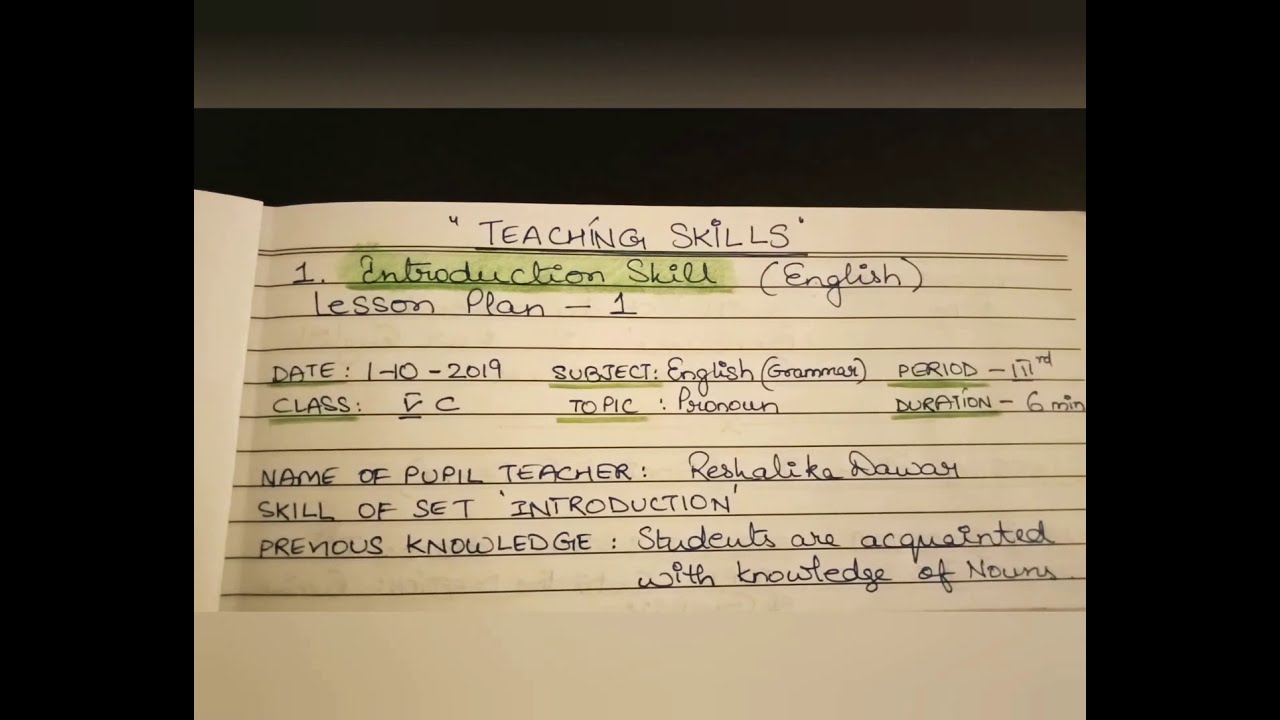 "TEACHING SKILLS"
1. Introduction Skill (English)
Lesson Plan – 1
DATE: 1-10-2019 SUBJECT: English (Grammar) PERIOD – IIIrd
CLASS: V C TOPIC: Pronoun DURATION – 6 min
NAME OF PUPIL TEACHER: Reshalika Dawar
SKILL OF SET 'INTRODUCTION'
PREVIOUS KNOWLEDGE: Students are acquainted
with knowledge of Nouns.